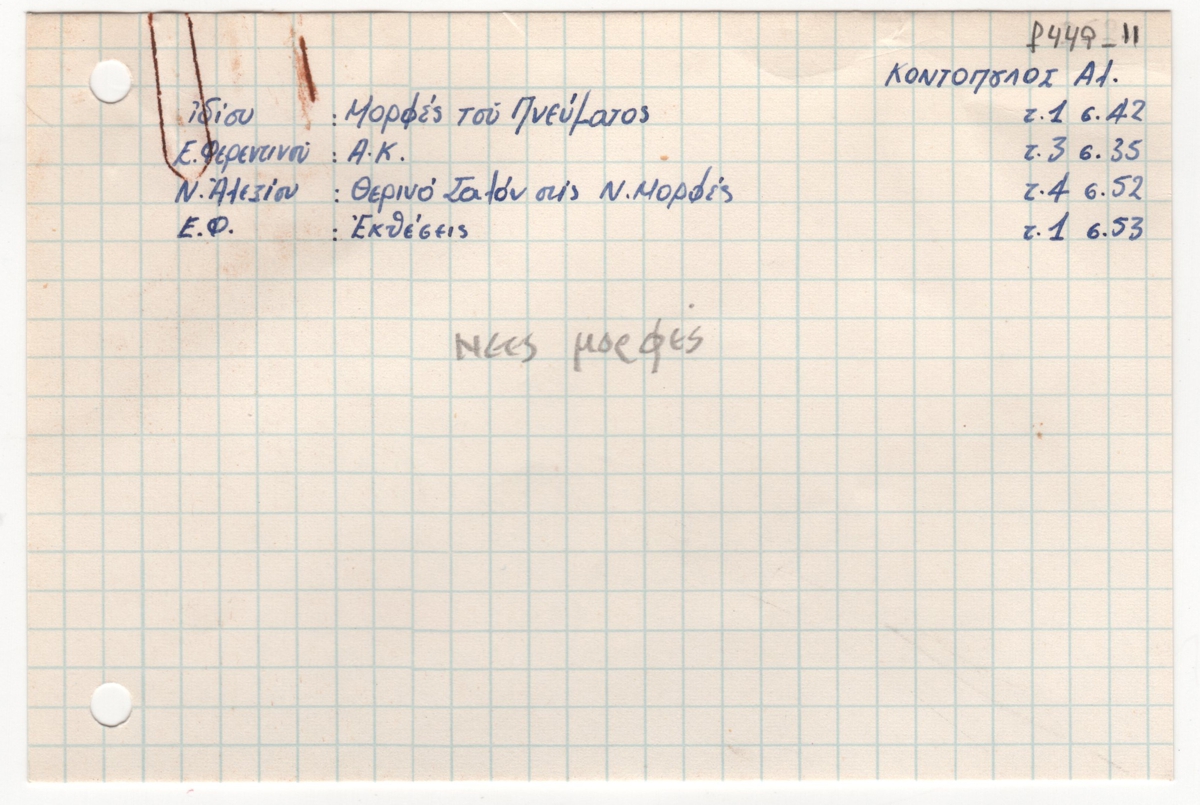 f449-11
ΚΟΝΤΟΠΟΥΛΟΣ Αλ.
ἰδίου : Μορφές τοῦ Πνεύματος τ.1 σ.42
Ε.Φερεντινοῦ : Α.Κ. τ.3 σ.35
Ν.Ἀλεξίου : Θερινό Σαλόν στίς Ν.Μορφές τ.4 σ.52
Ε.Φ. : Ἐκθέσεις τ.1 σ.53
Νέες μορφές